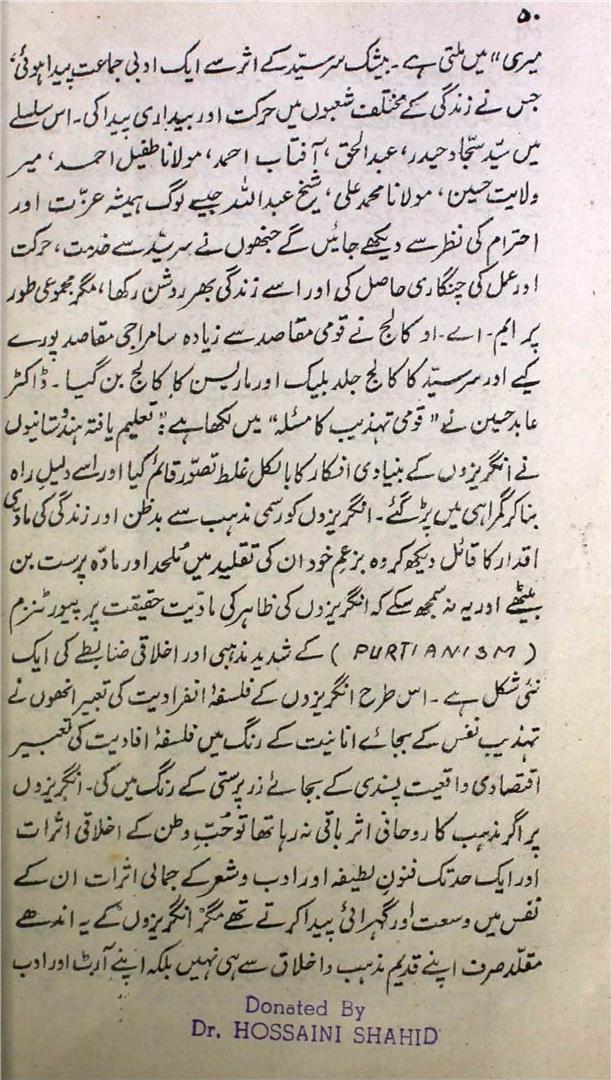 ۵۰
میری" میں ملتی ہے۔ بیشک سرسیّد کے اثر سے ایک ادبی جماعت پیدا ہوئی،
جس نے زندگی کے مختلف شعبوں میں حرکت اور بیداری پیدا کی۔ اس سلسلے
میں سیّد سجّاد حیدر، عبدالحق، آفتاب احمد، مولانا طفیل احمد، میر
ولایت حسین، مولانا محمد علی، شیخ عبداللہ جیسے لوگ ہمیشہ عزّت اور
احترام کی نظر سے دیکھے جائیں گے جنھوں نے سرسیّد سے خدمت، حرکت
اور عمل کی چنگاری حاصل کی اور اسے زندگی بھر روشن رکھا، مگر مجموعی طور
پر ایم۔ اے۔ او کالج نے قومی مقاصد سے زیادہ سامراجی مقاصد پورے
کیے اور سرسیّد کا کالج جلد بلیک اور ماریسن کا کالج بن گیا۔ ڈاکٹر
عابد حسین نے "قومی تہذیب کا مسئلہ" میں لکھا ہے: "تعلیم یافتہ ہندوستانیوں
نے انگریزوں کے بنیادی افکار کا بالکل غلط تصوّر قائم کیا اور اسے دلیلِ راہ
بنا کر گمراہی میں پڑ گئے۔ انگریزوں کو رسمی مذہب سے بدظن اور زندگی کی مادّی
اقدار کا قائل دیکھ کر وہ بزعمِ خود ان کی تقلید میں مُلحد اور مادّہ پرست بن
بیٹھے اور یہ نہ سمجھ سکے کہ انگریزوں کی ظاہر کی مادّیت حقیقت پر پیورٹنزم
(PURTIANISM) کے شدید مذہبی اور اخلاقی ضابطے کی ایک
نئی شکل ہے۔ اس طرح انگریزوں کے فلسفۂ انفرادیت کی تعبیر انھوں نے
تہذیبِ نفس کے بجائے انانیت کے رنگ میں فلسفۂ افادیت کی تعبیر
اقتصادی واقعیت پسندی کے بجائے زرپرستی کے رنگ میں کی۔ انگریزوں
پر اگر مذہب کا روحانی اثر باقی نہ رہا تھا تو حُبِّ وطن کے اخلاقی اثرات
اور ایک حد تک فنونِ لطیفہ اور ادب و شعر کے جمالی اثرات ان کے
نفس میں وسعت اور گہرائی پیدا کرتے تھے مگر انگریزوں کے یہ اندھے
مقلّد صرف اپنے قدیم مذہب و اخلاق سے ہی نہیں بلکہ اپنے آرٹ اور ادب
Donated By
Dr. HOSSAINI SHAHID